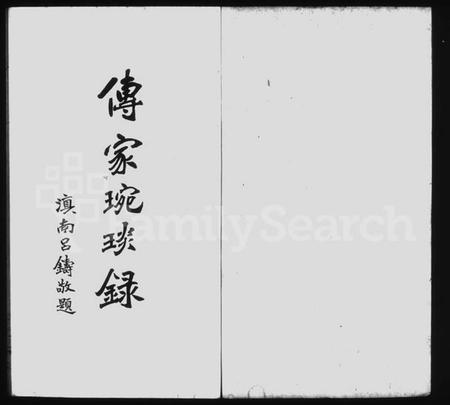 傳家琬琰録
滇南呂鑄敬題
FamilySearch